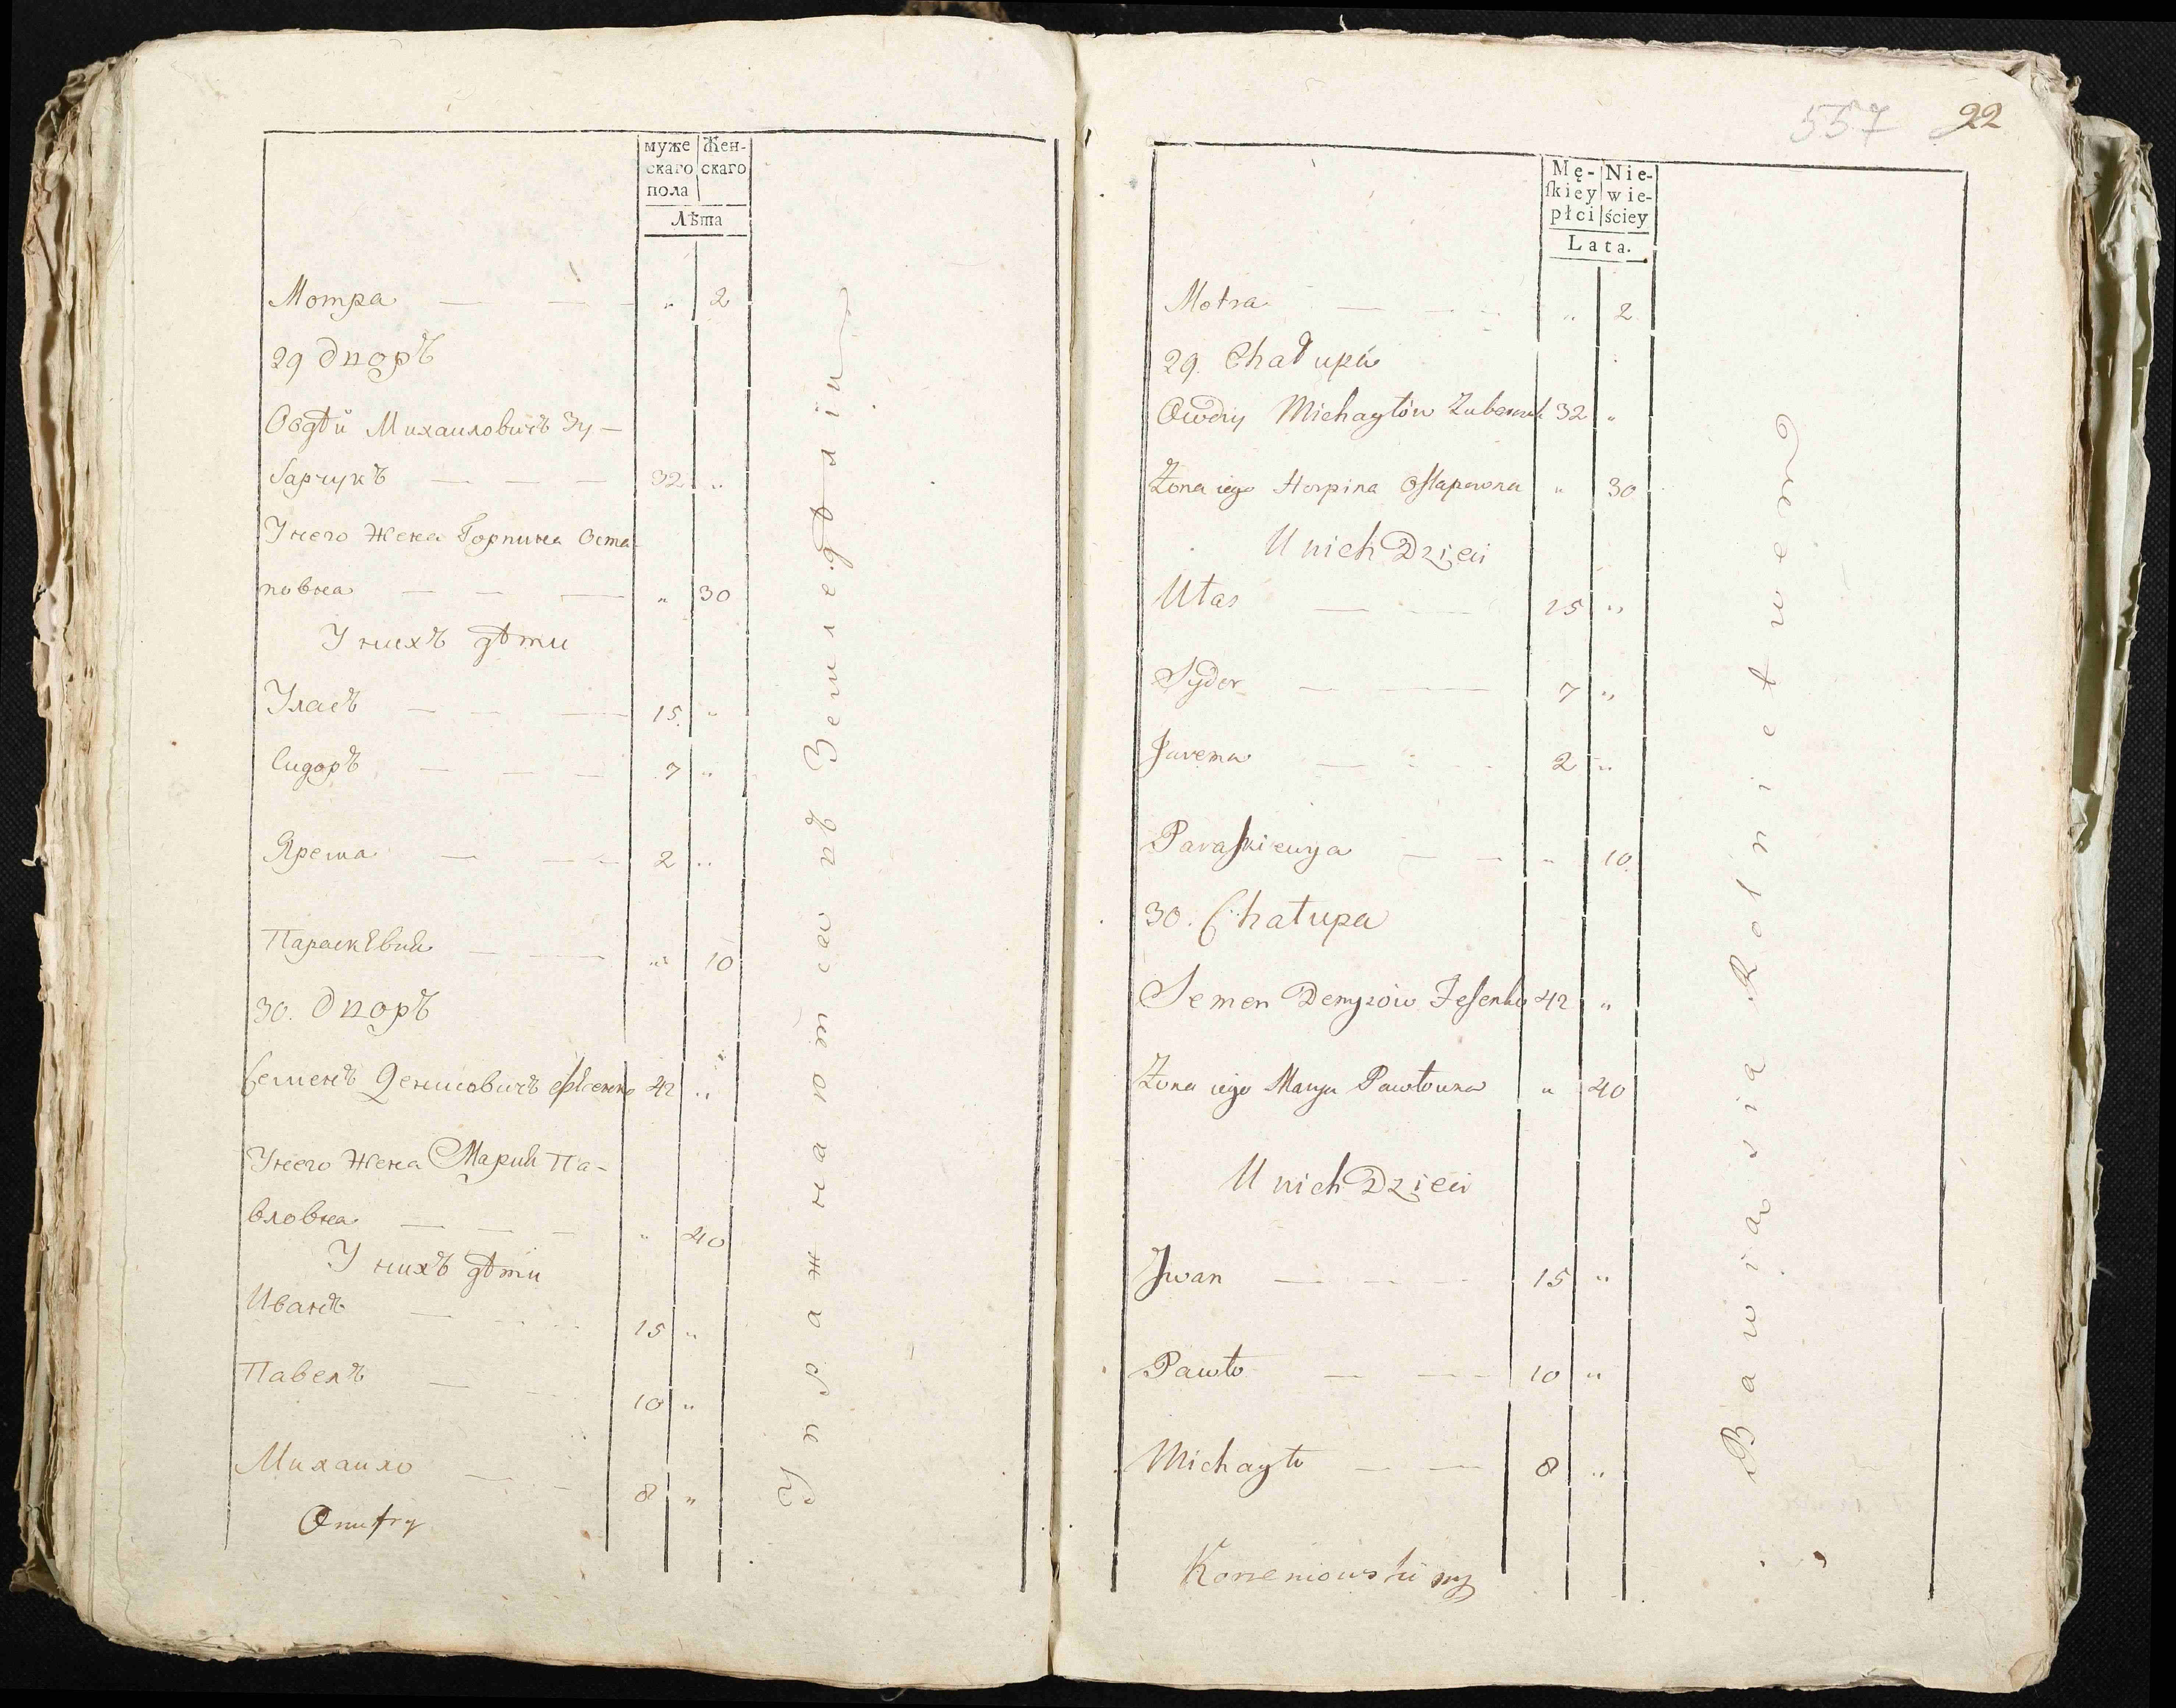 муже Жен-
скаго скаго
пола
Лѣта
Мотра — — „ 2
29 дворъ
Овдѣй Михаиловичъ Зу-
барчукъ — — — 32 „
У него жена Горпина Оста-
повна — — — „ 30
У нихъ дѣти
Уласъ — — — 15. „
Сидоръ — — — 7 „
Ярема — — 2 „
Параскѣвия — — „ 10
30. дворъ
Семенъ Денисовичъ 42 „
У него жена Мария Па-
вловна — — — „ 40
У нихъ дѣти
Иванъ — — 15 „
Павелъ — — 10 „
Михаило — — 8 „
Onufry
Упражнаются въ Земледѣлiи
557 22
Mę- Nie-
ſkiey wie-
płci ściey
Lata.
Motra — — „ 2
29. Chałupa
Owdiy Michayłów 32 „
Żona iego Horpina Ostapowna „ 30
U nich Dzieci
Ułas — — 15 „
Sydor — — 7 „
Jarema — — 2 „
Paraskiewya — — „ 10
30. Chałupa
Semen Denysów Jesenko 42 „
Żona iego Marya Pawłowna „ 40
U nich Dzieci
Jwan — — 15 „
Pawło — — 10 „
Michayło — — 8 „
Korzeniowski mp
Bawią się Rolnictwem